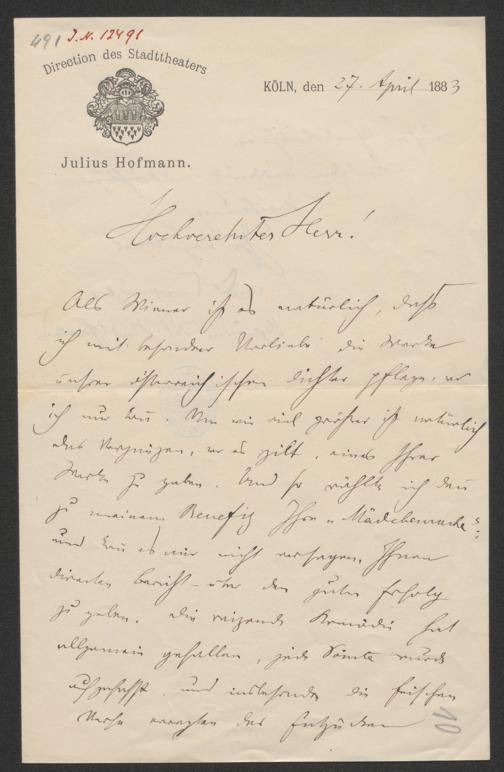 491 J.N. 12491
Direction des Stadttheaters
KÖLN, den 27. April 1883
Julius Hofmann.
Hochverehrter Herr!
Als Wiener ist es natürlich, daß
ich mit besondrer Vorliebe die Werke
unsrer österreichischen Dichter pflege, wo
ich nur kann. Um wie viel größer ist natürlich
das Vergnügen, wo es gilt, eines Ihrer
Werke zu geben. Und so wählte ich denn
zu meinem Benefiz Ihre „Mädchenrache“
und kann es mir nicht versagen, Ihnen
directen Bericht über den guten Erfolg
zu geben. Die reizende Komödie hat
allgemein gefallen, jede Pointe wurde
aufgefaßt und insbesondre die frischen
Verse erregten das Entzücken
10